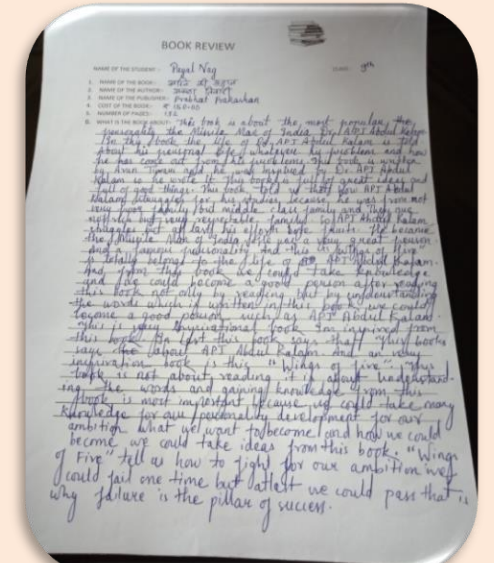 BOOK REVIEW
NAME OF THE STUDENT :- Payal Nag CLASS: 9th
1. NAME OF THE BOOK:-
2. NAME OF THE AUTHOR:-
3. NAME OF THE PUBLISHER:- Prabhat Prakashan
4. COST OF THE BOOK:- ₹
5. NUMBER OF PAGES:- 152
6. WHAT IS THE BOOK ABOUT:- This book is about the most popular, the
personality the Missile Man of India, Dr. APJ Abdul Kalam
In this book the life of Dr. APJ Abdul Kalam is told
about his personal life, whatever his problems and how
he has come out from his problems. This book is written
by Arun Tiwari and he was inspired by Dr. APJ Abdul
Kalam so he wrote it. This book is of great ideas and
full of good things. This book told us that how APJ Abdul
Kalam struggles for his studies, because he was from not
very poor family but middle class family and They are
but very respectable family. So APJ Abdul Kalam
struggles but at last his efforts bore fruits. He became
the Missile Man of India. He was a very great person
And a famous personality and this is "Wings of Fire"
is totally belongs to the life of APJ Abdul Kalam
And, from this book we could take knowledge
and we could become a good person after reading
this book not only by reading but by understanding
the words which is written in this book we could
become a good person such as APJ Abdul Kalam.
This is very Inspirational book I'm inspired from
this book. In last this book says that This books
says about APJ Abdul Kalam and an very
inspiration book is this "Wings of Fire". This
book is not about reading it is about understand-
ing the words and gaining knowledge from this
book is most important because we could take many
knowledge for our personality development for our
ambition what we want to become and how we could
become we could take ideas from this book. "Wings
of Fire" tell us how to fight for our ambition we
could fail one time but atlast we could pass that is
why failure is the pillar of success.